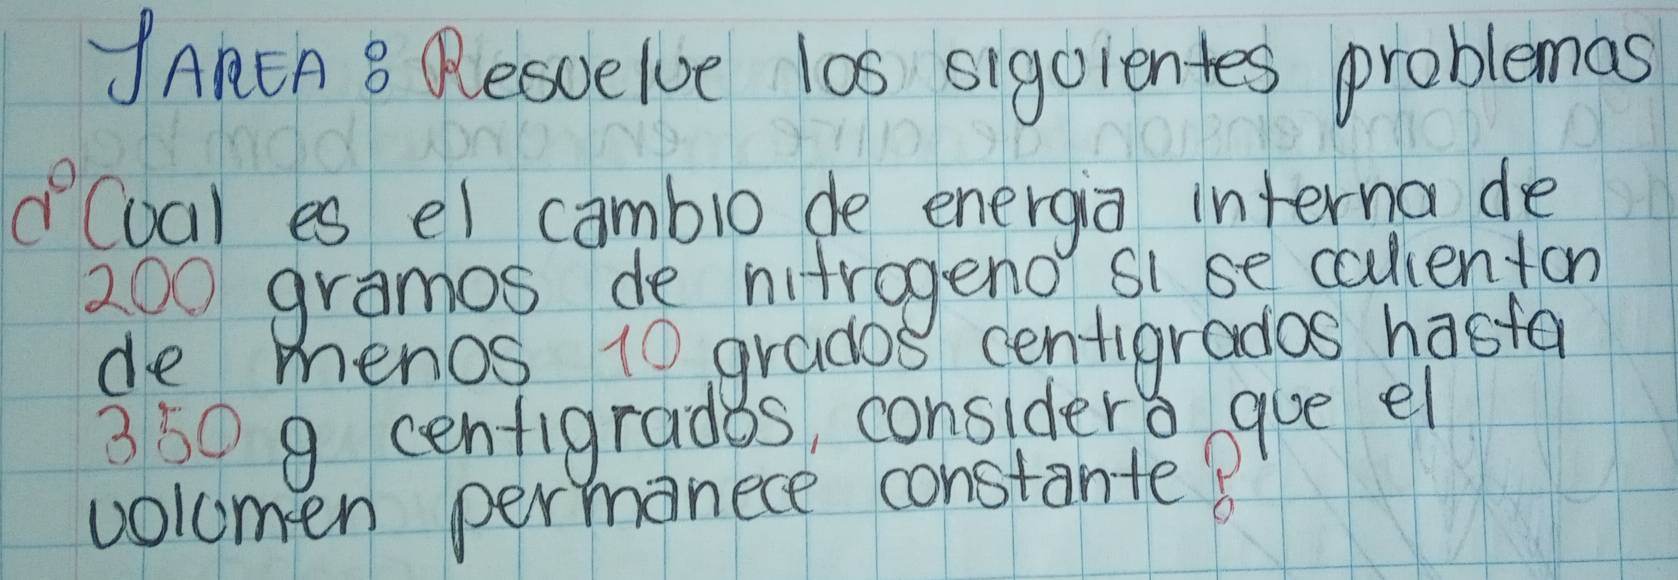 TAREA: Resuelve los siguientes problemas
¿Cual es el cambio de energia interna de
200 gramos de nitrogeno si se calientan
de menos 10 grados centigrados hasta
350 g centigrados, considera que el
volumen permanece constante?